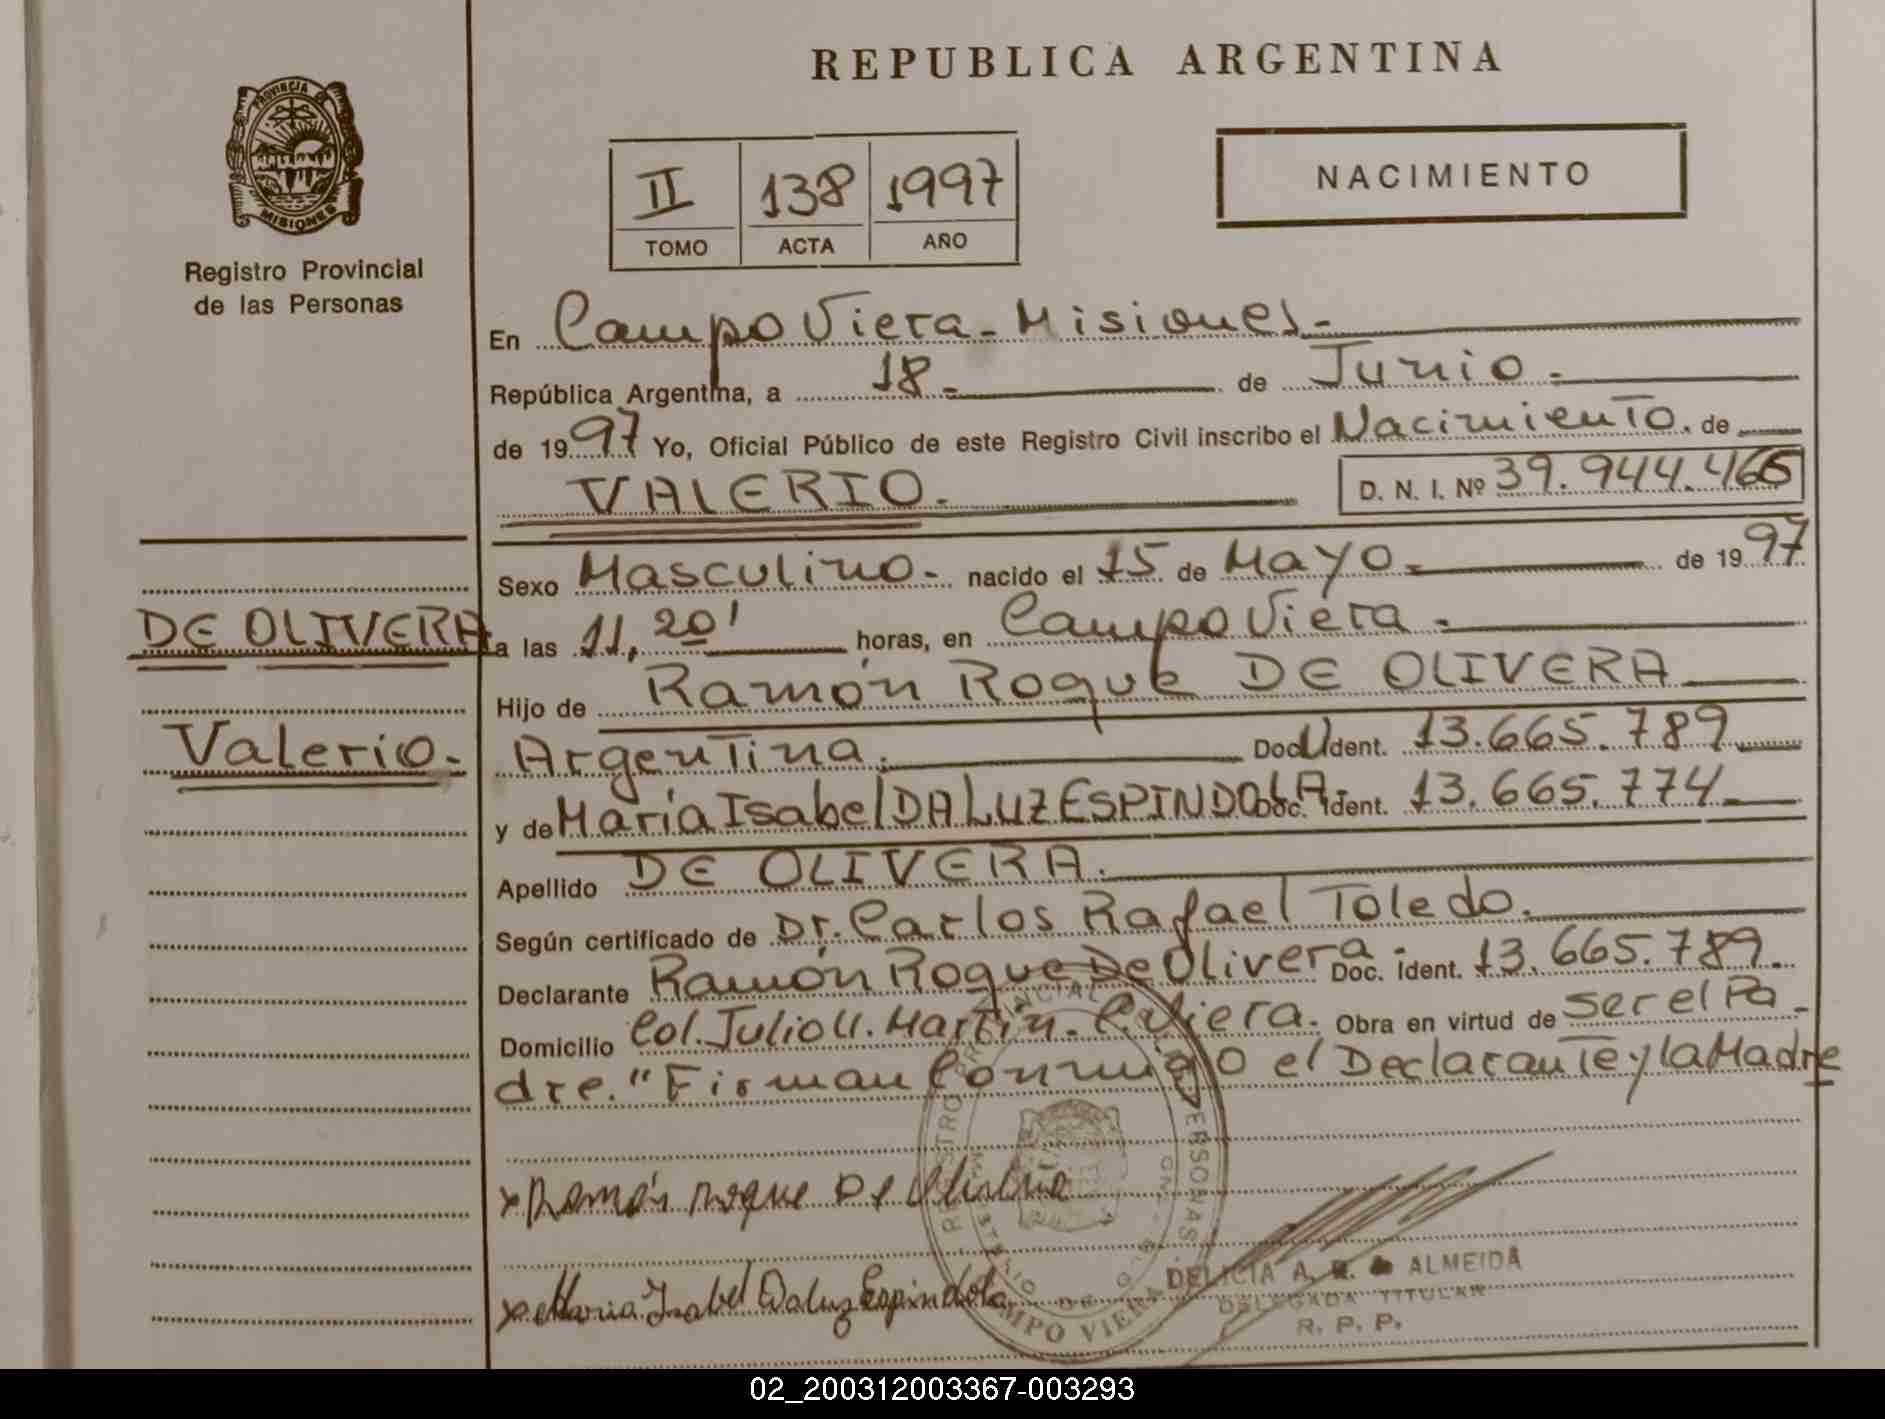 REPUBLICA ARGENTINA
PROVINCIA
MISIONES
Registro Provincial
de las Personas
II 138 1997
TOMO ACTA AÑO
NACIMIENTO
En Campo Viera - Misiones.-
República Argentina, a 18.- de Junio.-
de 1997 Yo, Oficial Público de este Registro Civil inscribo el Nacimiento. de
VALERIO.
D. N. I. Nº 39.944.465
Sexo Masculino.- nacido el 15 de Mayo.- de 1997
DE OLIVERA
a las 11,20' horas, en Campo Viera.-
Hijo de Ramón Roque DE OLIVERA
Valerio.-
Argentina. Doc. U Ident. 13.665.789
y de María Isabel DA LUZ ESPINDOLA.- Doc. Ident. 13.665.774
Apellido DE OLIVERA.
Según certificado de Dr. Carlos Rafael Toledo.
Declarante Ramón Roque De Olivera.- Doc. Ident. 13.665.789.
Domicilio Col. Julio U. Martin.- C. Viera. Obra en virtud de ser el Pa-
dre." Firman Conmigo el Declarante y la Madre
x Ramón Roque De Olivera
x Maria Isabel Daluz Espindola
CAMPO VIERA
DELICIA A. ALMEIDA
DELEGADA TITULAR
R. P. P.
02_200312003367-003293